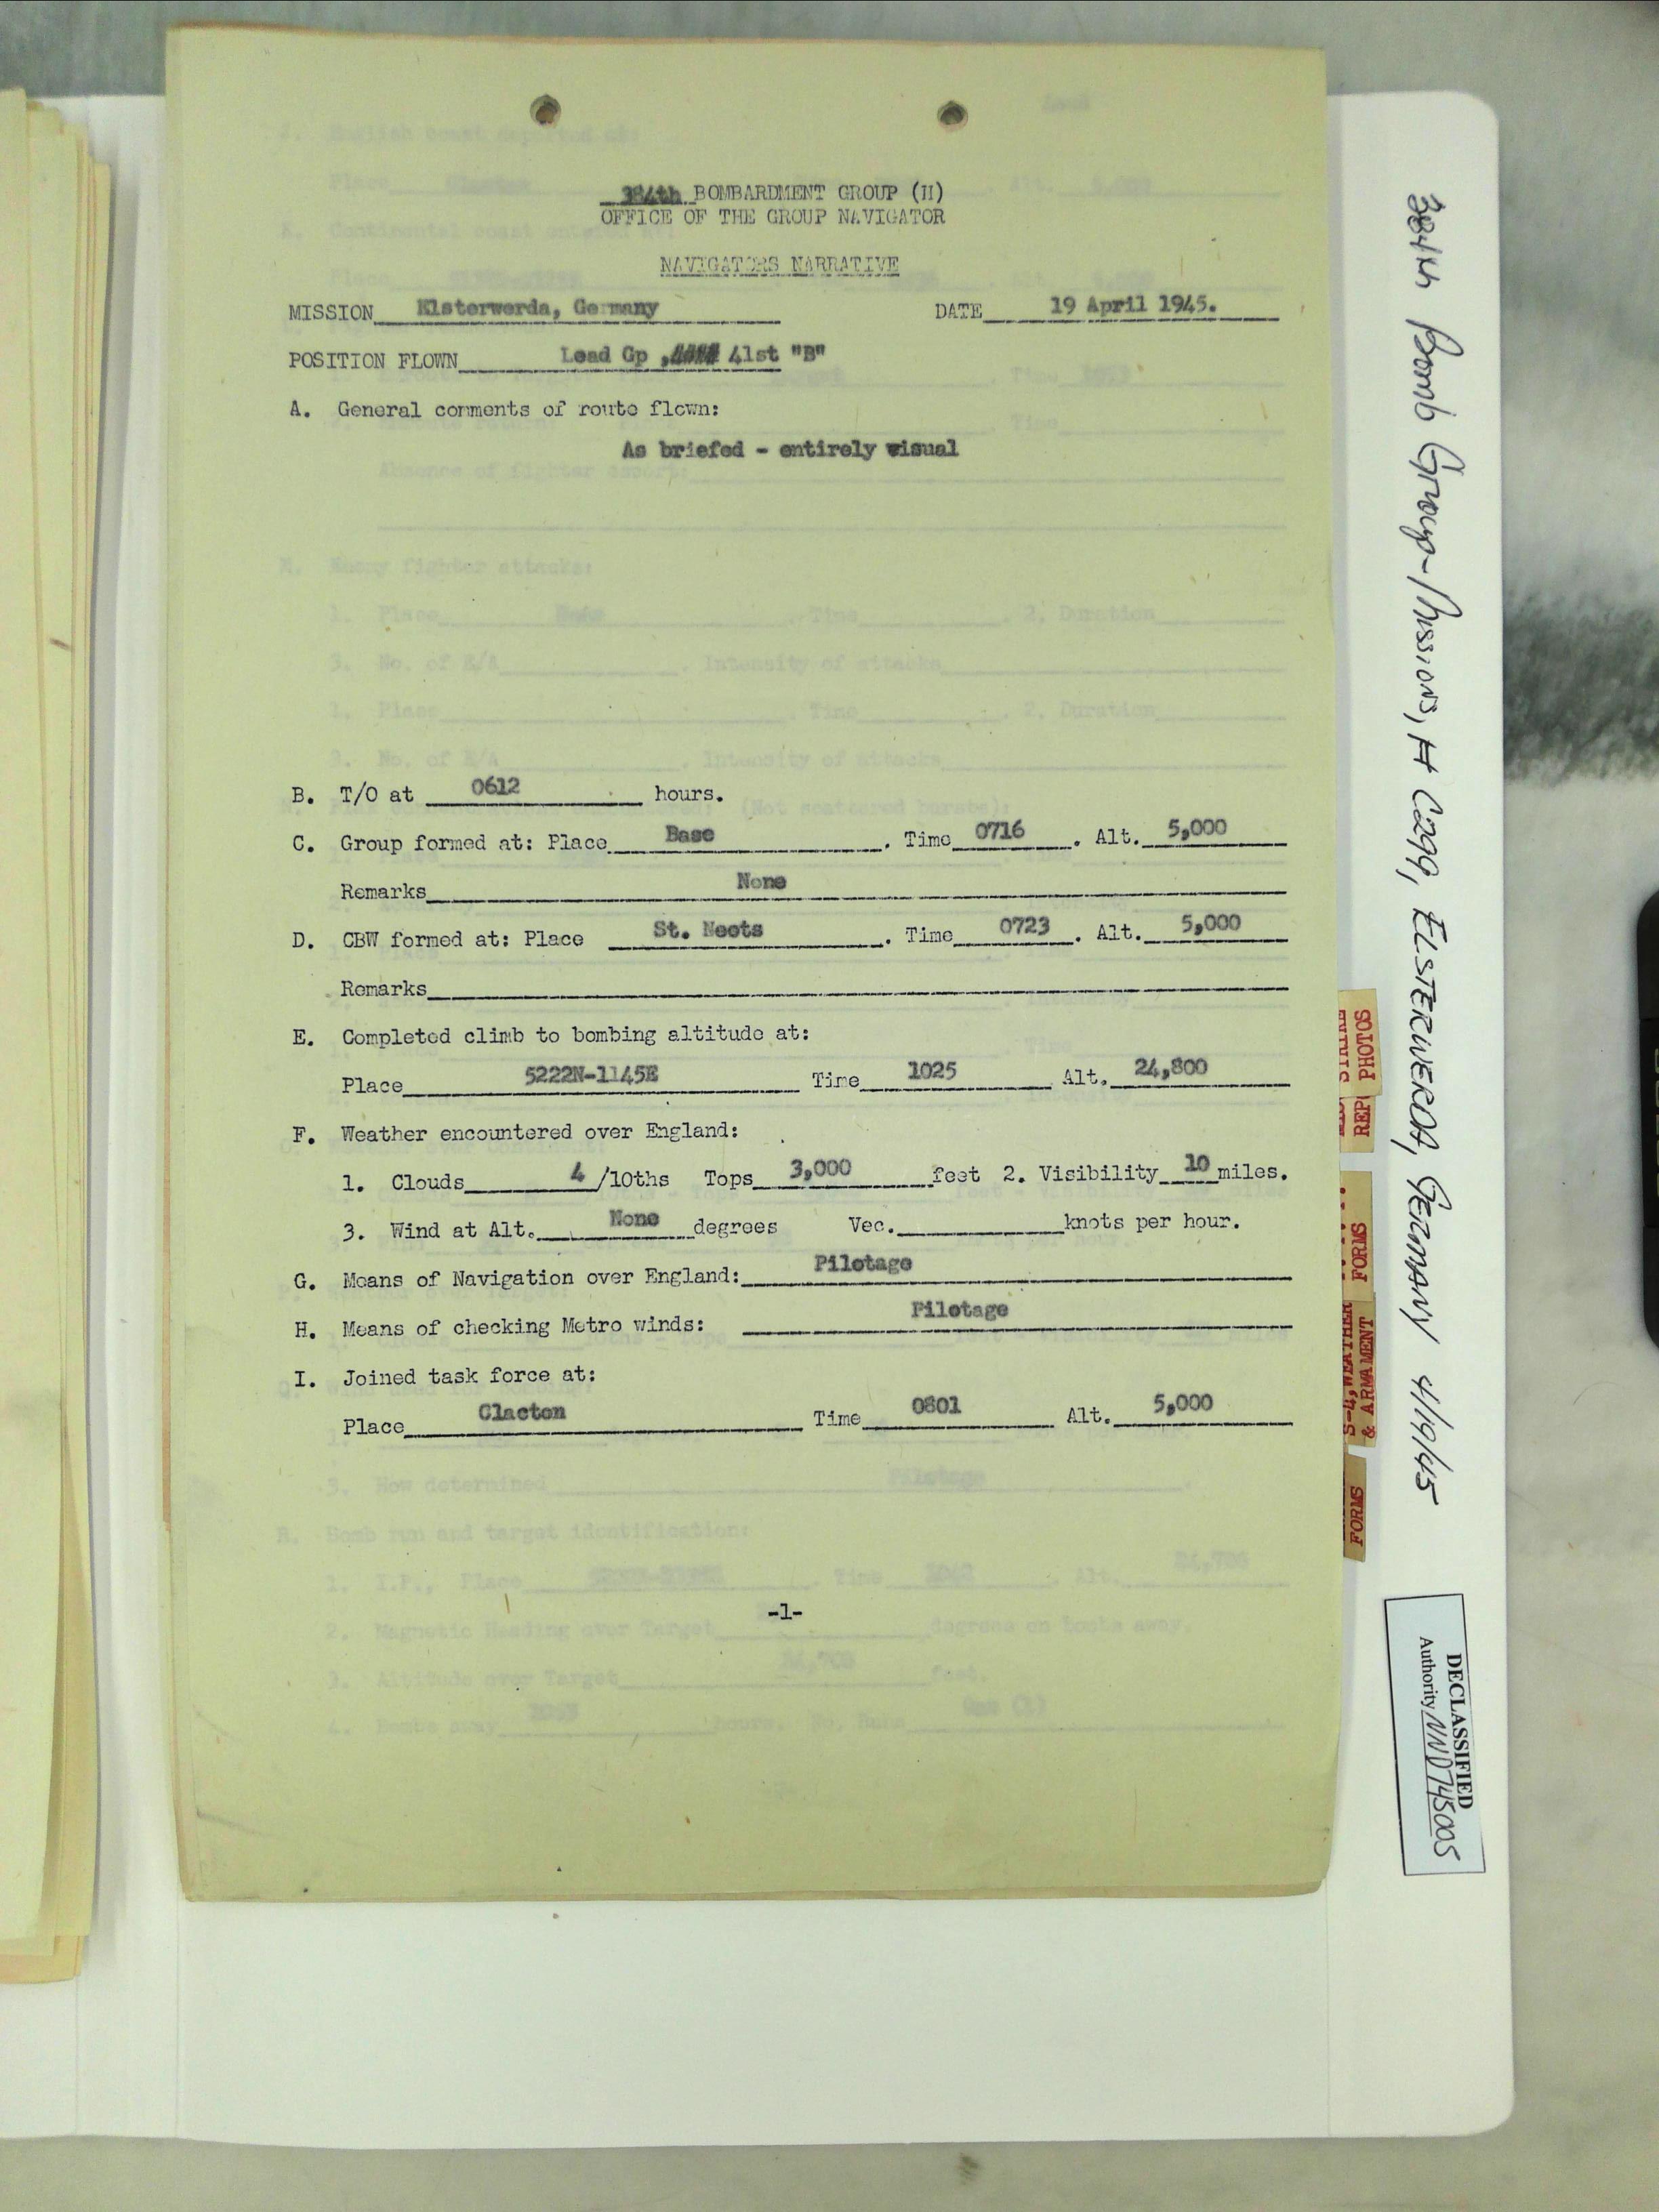 384th BOMBARDMENT GROUP (H)
OFFICE OF THE GROUP NAVIGATOR
NAVIGATORS NARRATIVE
MISSION Elsterwerda, Germany DATE 19 April 1945.
POSITION FLOWN Lead Gp , 41st "B"
A. General comments of route flown:
As briefed - entirely visual
B. T/O at 0612 hours.
C. Group formed at: Place Base . Time 0716 . Alt. 5,000
Remarks None
D. CBW formed at: Place St. Neots . Time 0723 . Alt. 5,000
Remarks
E. Completed climb to bombing altitude at:
Place 5222N-1145E Time 1025 Alt. 24,800
F. Weather encountered over England:
1. Clouds 4 /10ths Tops 3,000 feet 2. Visibility 10 miles.
3. Wind at Alt. None degrees Vec. knots per hour.
G. Means of Navigation over England: Pilotage
H. Means of checking Metro winds: Pilotage
I. Joined task force at:
Place Clacton Time 0801 Alt. 5,000
-1-
384th Bomb Group-Missions, # C299, ELSTERWERDA, GERMANY 4/19/45
STRIKE
PHOTOS
FORMS
S-4, WEATHER
& ARMAMENT
FORMS
DECLASSIFIED
Authority NND745005